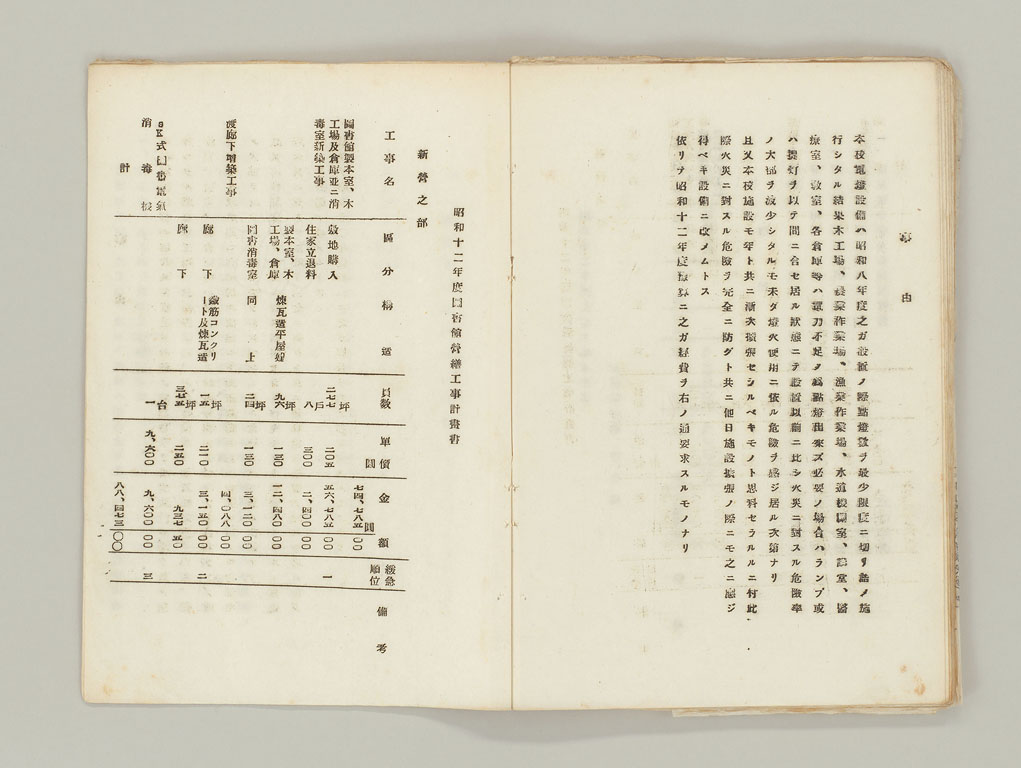 事由
本校電燈設備ハ昭和八年度之ガ設置ノ際點燈數ヲ最少限度ニ切リ詰メ施
行シタル結果木工場、農業作業場、漁業作業場、水道機關室、講堂、醫
療室、敎室、各倉庫等ハ電力不足ノ爲點燈出來ズ必要ノ場合ハランプ或
ハ提灯ヲ以テ間ニ合セ居ル狀態ニテ設置以前ニ比シ火災ニ對スル危險率
ノ大部ヲ減少シタルモ未ダ燈火使用ニ依ル危險ヲ感ジ居ル次第ナリ
且又本校施設モ年ト共ニ漸次擴張セシルベキモノト思料セラルルニ付此
際火災ニ對スル危險ヲ完全ニ防グト共ニ他日施設擴張ノ際ニモ之ニ應ジ
得ベキ設備ニ改メムトス
依リテ昭和十二年度豫算ニ之ガ經費ヲ右ノ通要求スルモノナリ
昭和十二年度圖書館營繕工事計畫書
新營之部
工事名 區分 構造 員數 單價 金額 緩急順位 備考
圓 圓
圖書館製本室、木
工場及倉庫並ニ消
毒室新築工事
七四、七八五 〇〇
敷地購入 二七七坪 二〇五 五六、七八五 〇〇 一
住家立退料 八戶 三〇〇 二、四〇〇 〇〇
製本室、木
工場、倉庫 煉瓦造平屋建 九六坪 一三〇 一二、四八〇 〇〇
圖書消毒室 同上 二四坪 一三〇 三、一二〇 〇〇
渡廊下增築工事 四、〇八八 〇〇
廊下 鐵筋コンクリ
ート及煉瓦造 一五坪 二一〇 三、一五〇 〇〇 二
廊下 三七五坪 二五〇 九三七 五〇
SK式圖書電氣
消毒機 一台 九、六〇〇 九、六〇〇 〇〇 三
計 八八、四七三 〇〇